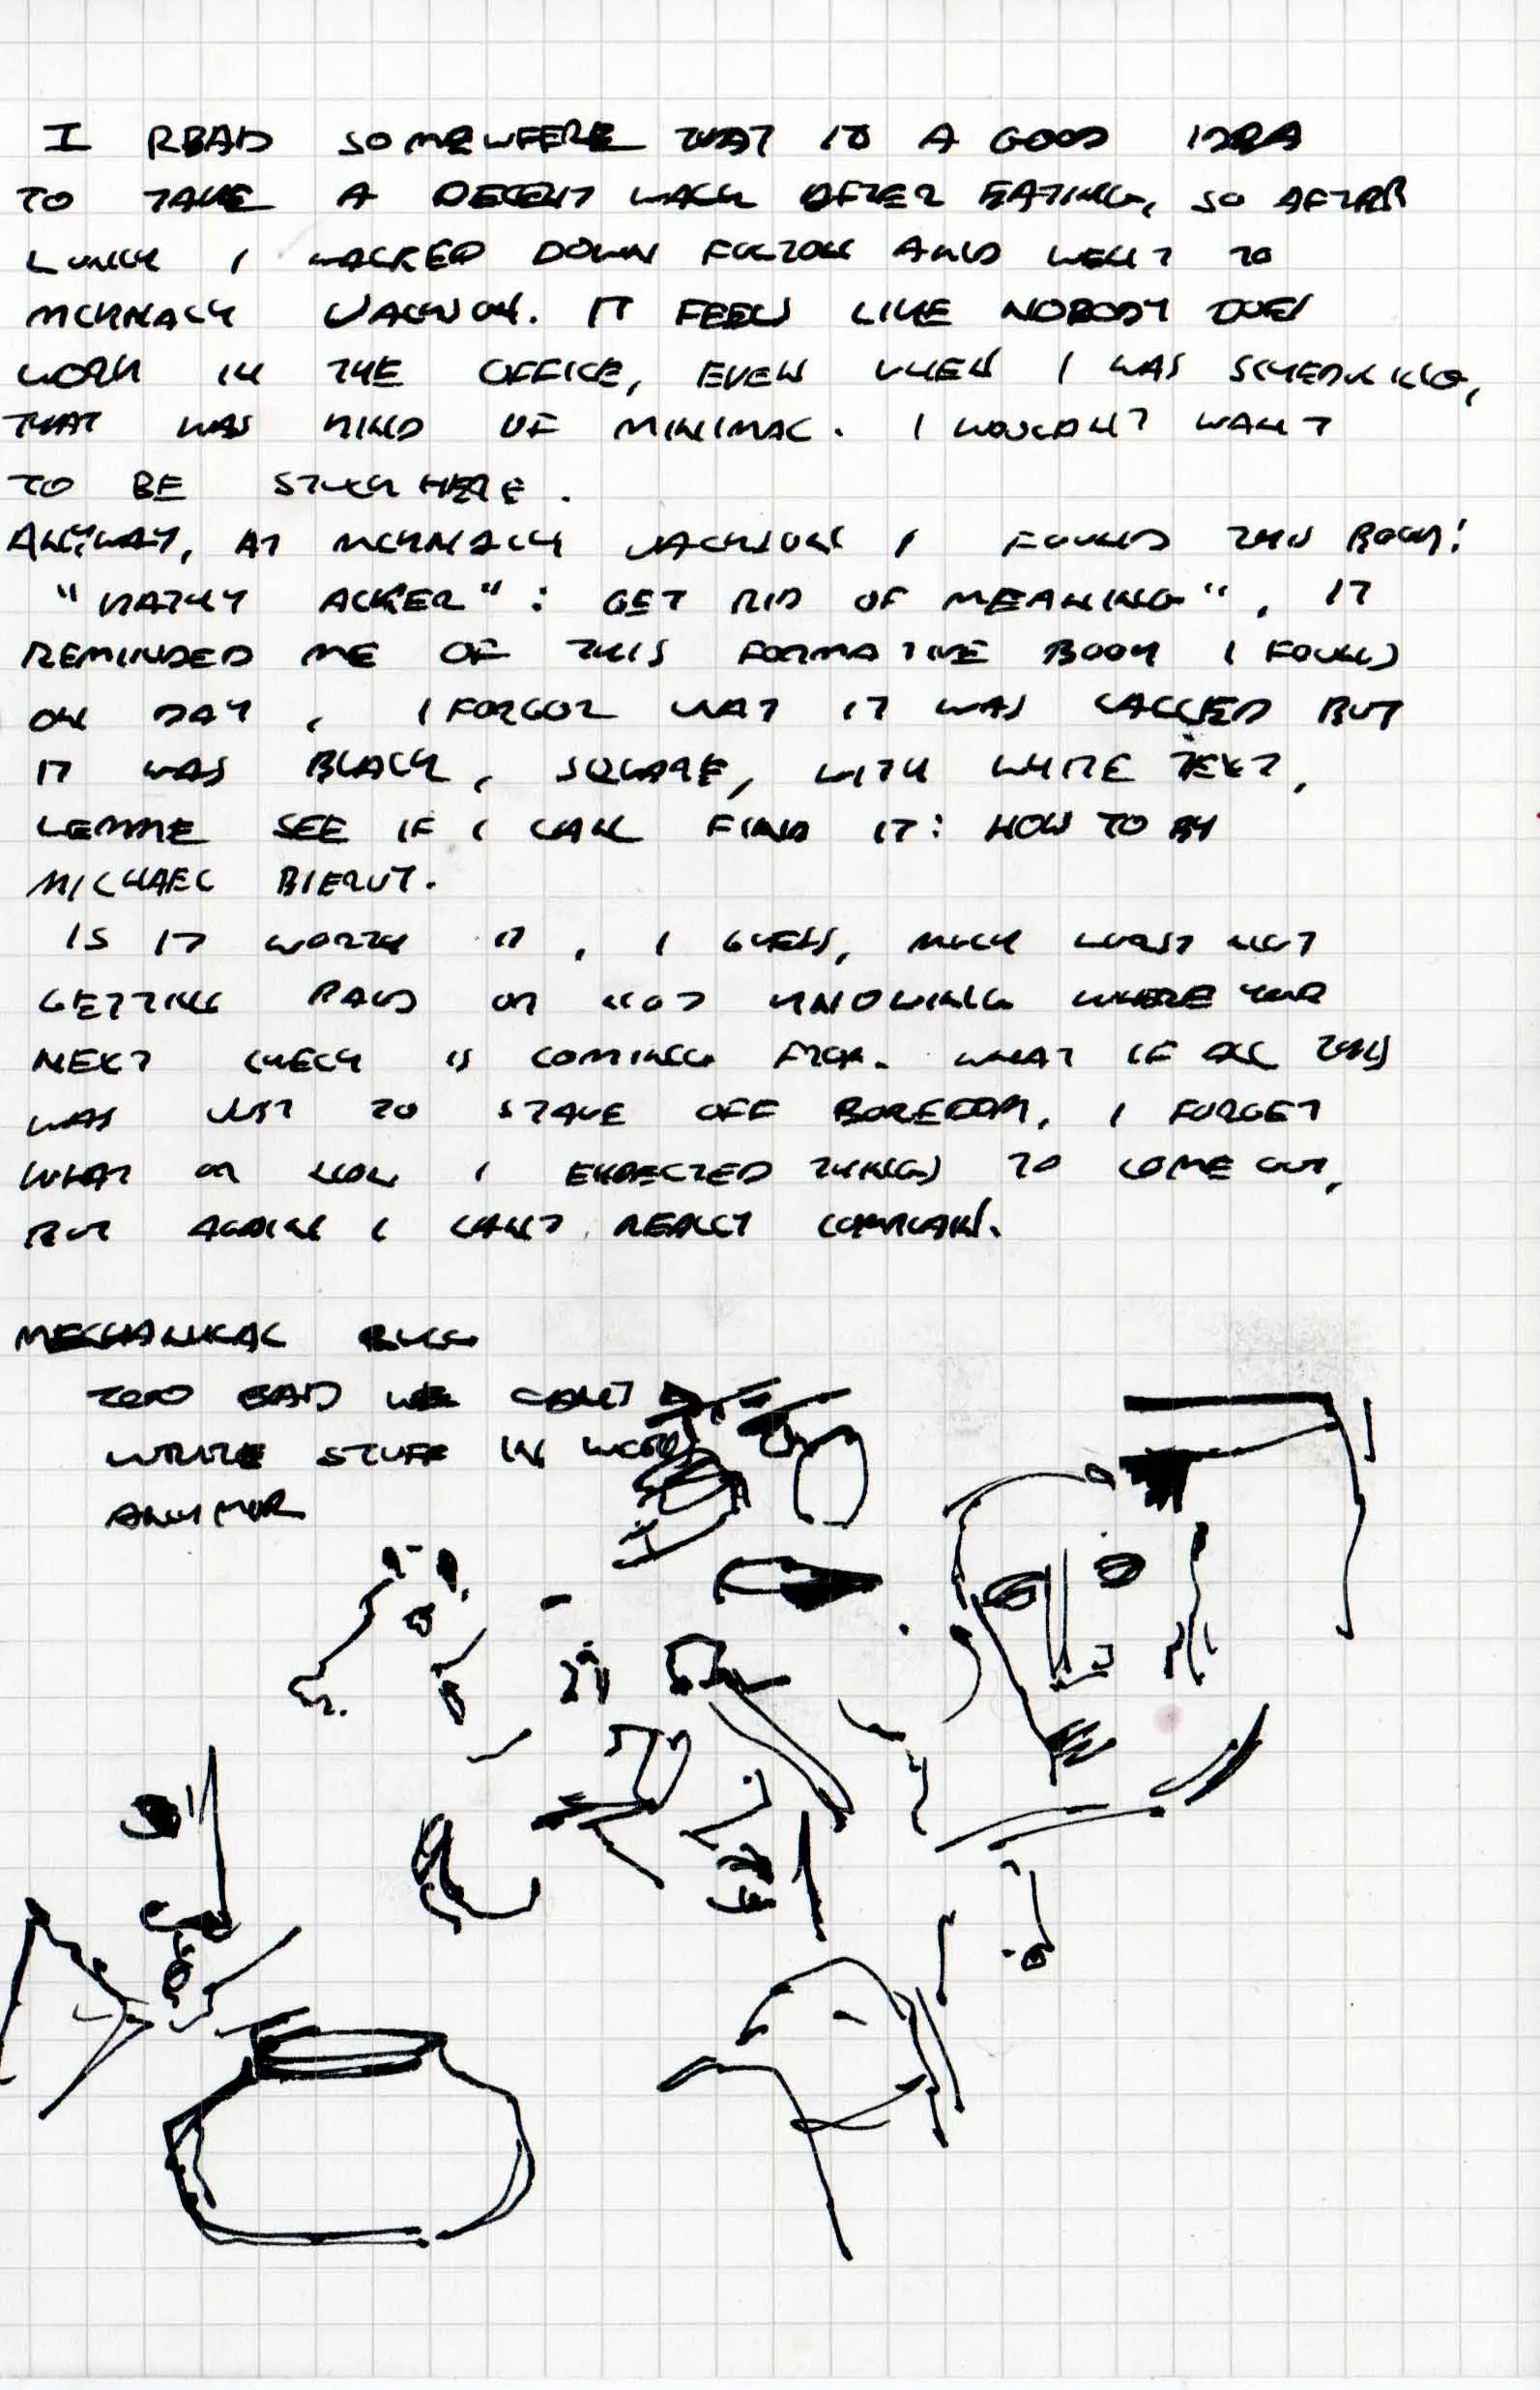 I READ SOMEWHERE THAT IS A GOOD IDEA
TO TAKE A DECENT WALK AFTER EATING, SO AFTER
LUNCH I WALKED DOWN FULTON AND WENT TO
MCKNALLY JACKSON. IT FEELS LIKE NOBODY DOES
WORK IN THE OFFICE, EVEN WHEN I WAS SCHEDULING,
THAT WAS KIND OF MINIMAL. I WOULDN'T WANT
TO BE STUCK HERE.
ANYWAY, AT MCKNALLY JACKSON I FOUND THIS BOOK:
"KATHY ACKER": GET RID OF MEANING", IT
REMINDED ME OF THIS FORMATIVE BOOK I FOUND
ON DAY, I FORGOT WHAT IT WAS CALLED BUT
IT WAS BLACK, SQUARE, WITH WHITE TEXT,
LEMME SEE IF I CAN FIND IT: HOW TO BY
MICHAEL BIERUT.
IS IT WORTH IT, I GUESS, MUCH WORST NOT
GETTING PAID OR NOT KNOWING WHERE YOUR
NEXT CHECK IS COMING FROM. WHAT IF ALL THIS
WAS JUST TO STAVE OFF BOREDOM, I FORGET
WHAT OR HOW I EXPECTED THINGS TO COME OUT,
BUT AGAIN I CANT REALLY COMPLAIN.
MECHANICAL
TOO BAD WE CANT
WRITE STUFF IN
ANYMOR